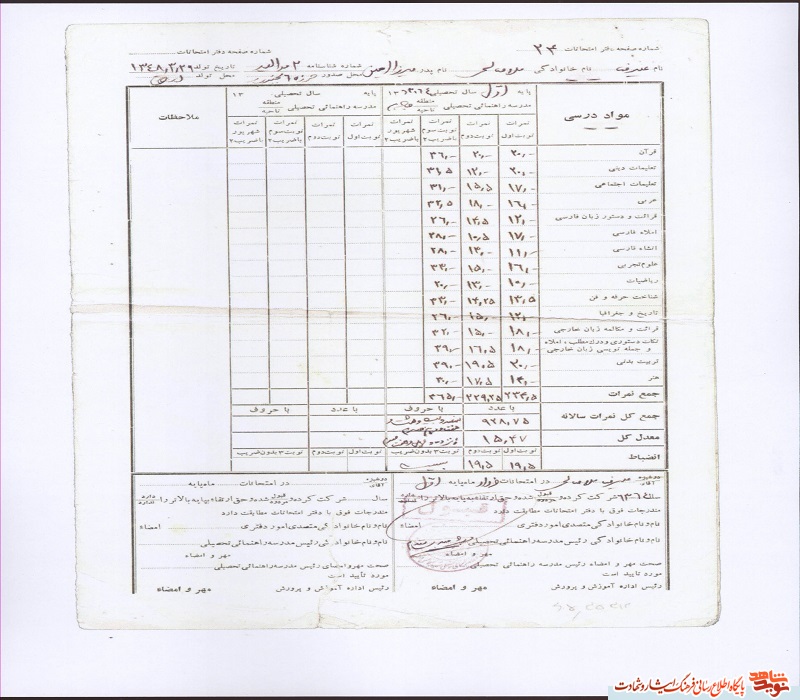 شماره صفحه دفتر امتحانات ۲۴ شماره صفحه دفتر امتحانات
نام شریف نام خانوادگی نام پدر شماره شناسنامه ۲ محل صدور تاریخ تولد ۱۳۴۸٫۳٫۲۹ محل تولد
مواد درسی پایه اول سال تحصیلی پایه سال تحصیلی ۱۳ ملاحظات
مدرسه راهنمائی تحصیلی منطقه ناحیه مدرسه راهنمائی تحصیلی منطقه ناحیه
نمرات نوبت اول نمرات نوبت دوم نمرات نوبت سوم باضریب ۲ نمرات شهریور باضریب ۳ نمرات نوبت اول نمرات نوبت دوم نمرات نوبت سوم باضریب ۲ نمرات شهریور باضریب ۳
قرآن ۲۰٫- ۲۰٫- ۳۶٫-
تعلیمات دینی ۲۰٫- ۱۲٫- ۳۱٫۵
تعلیمات اجتماعی ۱۷٫- ۱۵٫۵ ۳۱٫-
عربی ۱۶٫- ۱۸٫- ۳۲٫۵
قرائت و دستور زبان فارسی ۱۲٫- ۱۴٫۵ ۲۶٫-
املاء فارسی ۱۷٫- ۱۰٫۵ ۲۸٫-
انشاء فارسی ۱۱٫- ۱۴٫- ۲۸٫-
علوم تجربی ۱۶٫- ۱۵٫- ۳۴٫-
ریاضیات ۱۰٫- ۱۳٫- ۲۰٫-
شناخت حرفه و فن ۱۳٫۵ ۱۴٫۲۵
تاریخ و جغرافیا ۱۲٫- ۱۵٫- ۲۶٫-
قرائت و مکالمه زبان خارجی ۱۸٫- ۱۵٫- ۳۲٫-
نکات دستوری و درک مطلب، املاء
و جمله نویسی زبان خارجی ۱۸٫- ۱۶٫۵ ۲۹٫-
تربیت بدنی ۲۰٫- ۱۹٫۵ ۳۹٫-
هنر ۱۴٫- ۱۷٫۵ ۳۰٫-
جمع نمرات ۲۳۴٫۵ ۲۲۹٫۲۵ ۴۶۵٫-
با عدد با حروف با عدد با حروف
جمع کل نمرات سالانه ۹۲۸٫۷۵
معدل کل ۱۵٫۴۷
نوبت اول نوبت دوم نوبت ۳ بدون ضریب نوبت اول نوبت دوم نوبت ۳ بدون ضریب
انضباط ۱۹٫۵ ۱۹٫۵ بیست
دوشیزه آقای شریف در امتحانات خرداد ماه پایه اول
سال شرکت کرده و قبول مردود شده و حق ارتقاء به پایه بالاتر را دارد ندارد
مندرجات فوق با دفتر امتحانات مطابقت دارد
نام و نام خانوادگی متصدی امور دفتری امضاء
نام و نام خانوادگی رئیس مدرسه راهنمائی تحصیلی
مهر و امضاء
صحت مهر و امضاء رئیس مدرسه راهنمائی تحصیلی
مورد تأیید است
رئیس اداره آموزش و پرورش مهر و امضاء
قبول
دوشیزه آقای در امتحانات ماه پایه
سال شرکت کرده و قبول مردود شده و حق ارتقاء به پایه بالاتر را دارد ندارد
مندرجات فوق با دفتر امتحانات مطابقت دارد
نام و نام خانوادگی متصدی امور دفتری امضاء
نام و نام خانوادگی رئیس مدرسه راهنمائی تحصیلی
مهر و امضاء
صحت مهر و امضای رئیس مدرسه راهنمائی تحصیلی
مورد تأیید است
رئیس اداره آموزش و پرورش مهر و امضاء
نوید شاهد پایگاه اطلاع رسانی فرهنگ ایثار و شهادت